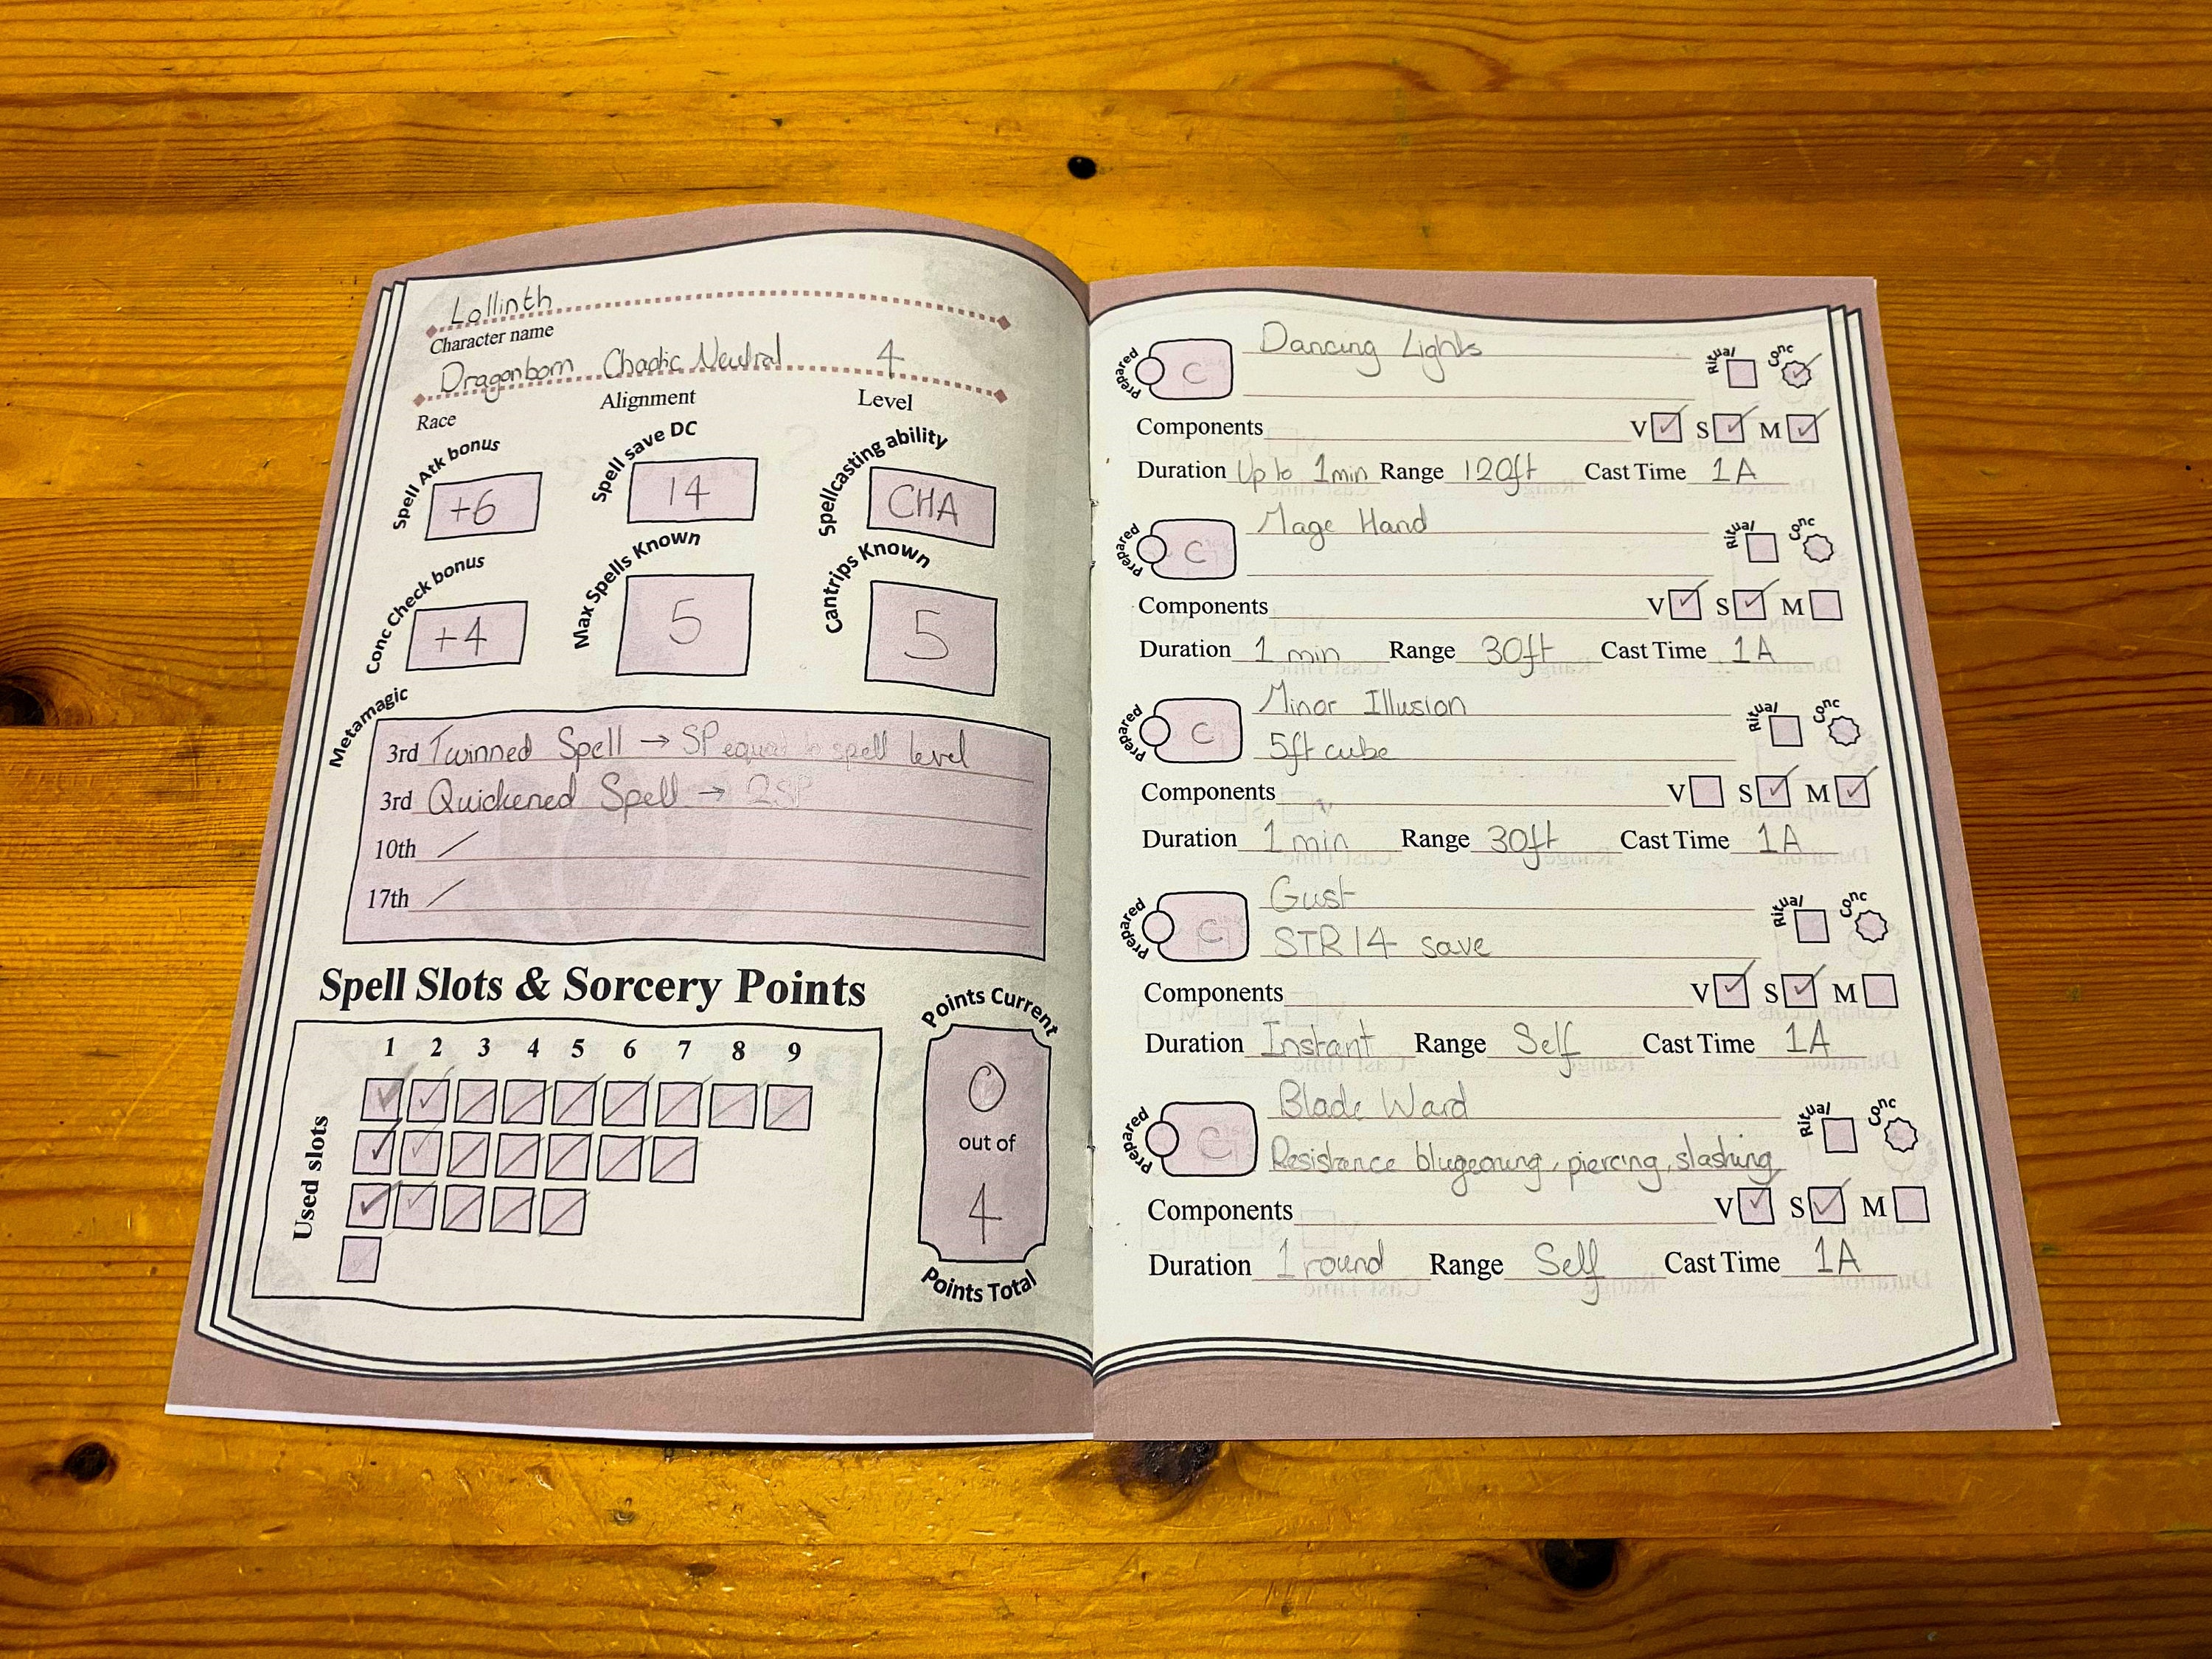 Lollinth
Character name
Dragonborn Chaotic Neutral 4
Race Alignment Level
Spell Atk bonus +6 Spell save DC 14 Spellcasting ability CHA
Conc Check bonus +4 Max Spells Known 5 Cantrips Known 5
Metamagic
3rd Twinned Spell → SP equal to spell level
3rd Quickened Spell → 2SP
10th /
17th /
Spell Slots & Sorcery Points
1 2 3 4 5 6 7 8 9
Used slots
Points Current
0
out of
4
Points Total
Prepared C Dancing Lights Ritual Conc
Components V S M
Duration Up to 1min Range 120ft Cast Time 1A
Prepared C Mage Hand Ritual Conc
Components V S M
Duration 1 min Range 30ft Cast Time 1A
Prepared C Minor Illusion Ritual Conc
5ft cube
Components V S M
Duration 1 min Range 30ft Cast Time 1A
Prepared C Gust Ritual Conc
STR 14 save
Components V S M
Duration Instant Range Self Cast Time 1A
Prepared C Blade Ward Ritual Conc
Resistance blugeoning, piercing, slashing
Components V S M
Duration 1 round Range Self Cast Time 1A